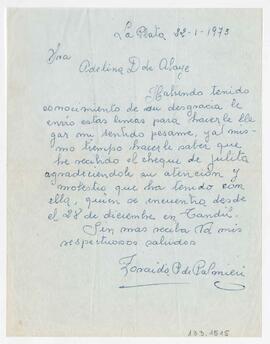 La Plata 22-1-1973
Sra
Adelina D de Alaye
Habiendo tenido
conocimiento de su desgracia le
envio estas lineas para hacerle lle
gar mi sentido pesame, y al mis-
mo tiempo hacerle saber que
he recibido el cheque de Julita
agradeciendole su atención y
molestia que ha tenido con
ella, quien se encuentra desde
el 28 de diciembre en Tandil.
Sin mas reciba Vd mis
respetuosos saludos
Zoraida P de Palmieri
133.1515